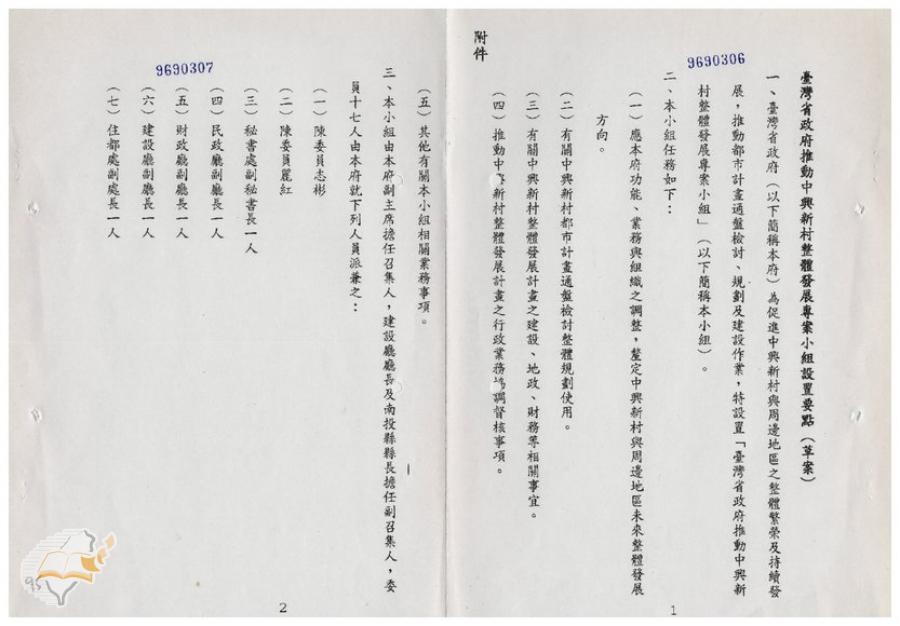 附件
9690306
臺灣省政府推動中興新村整體發展專案小組設置要點（草案）
一、臺灣省政府（以下簡稱本府）為促進中興新村與周邊地區之整體繁榮及持續發
展，推動都市計畫通盤檢討、規劃及建設作業，特設置「臺灣省政府推動中興新
村整體發展專案小組」（以下簡稱本小組）。
二、本小組任務如下：
（一）應本府功能、業務與組織之調整，釐定中興新村與周邊地區未來整體發展
方向。
（二）有關中興新村都市計畫通盤檢討整體規劃使用。
（三）有關中興新村整體發展計畫之建設、地政、財務等相關事宜。
（四）推動中興新村整體發展計畫之行政業務協調督核事項。
1
9690307
（五）其他有關本小組相關業務事項。
三、本小組由本府副主席擔任召集人，建設廳廳長及南投縣縣長擔任副召集人，委
員十七人由本府就下列人員派兼之：
（一）陳委員志彬
（二）陳委員麗紅
（三）秘書處副秘書長一人
（四）民政廳副廳長一人
（五）財政廳副廳長一人
（六）建設廳副廳長一人
（七）住都處副處長一人
2